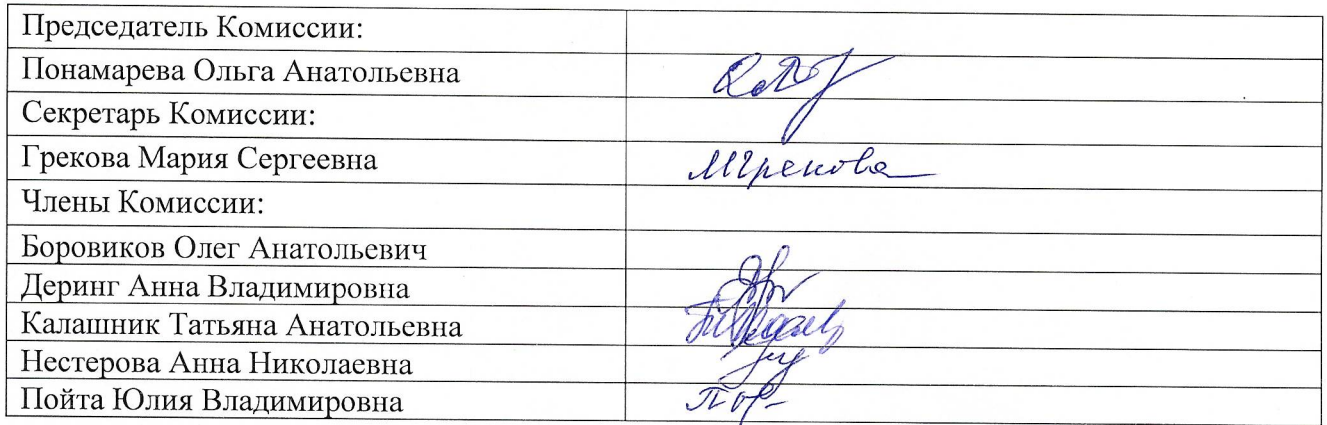 Председатель Комиссии:
Понамарева Ольга Анатольевна
Секретарь Комиссии:
Грекова Мария Сергеевна МГрекова
Члены Комиссии:
Боровиков Олег Анатольевич
Деринг Анна Владимировна
Калашник Татьяна Анатольевна
Нестерова Анна Николаевна
Пойта Юлия Владимировна